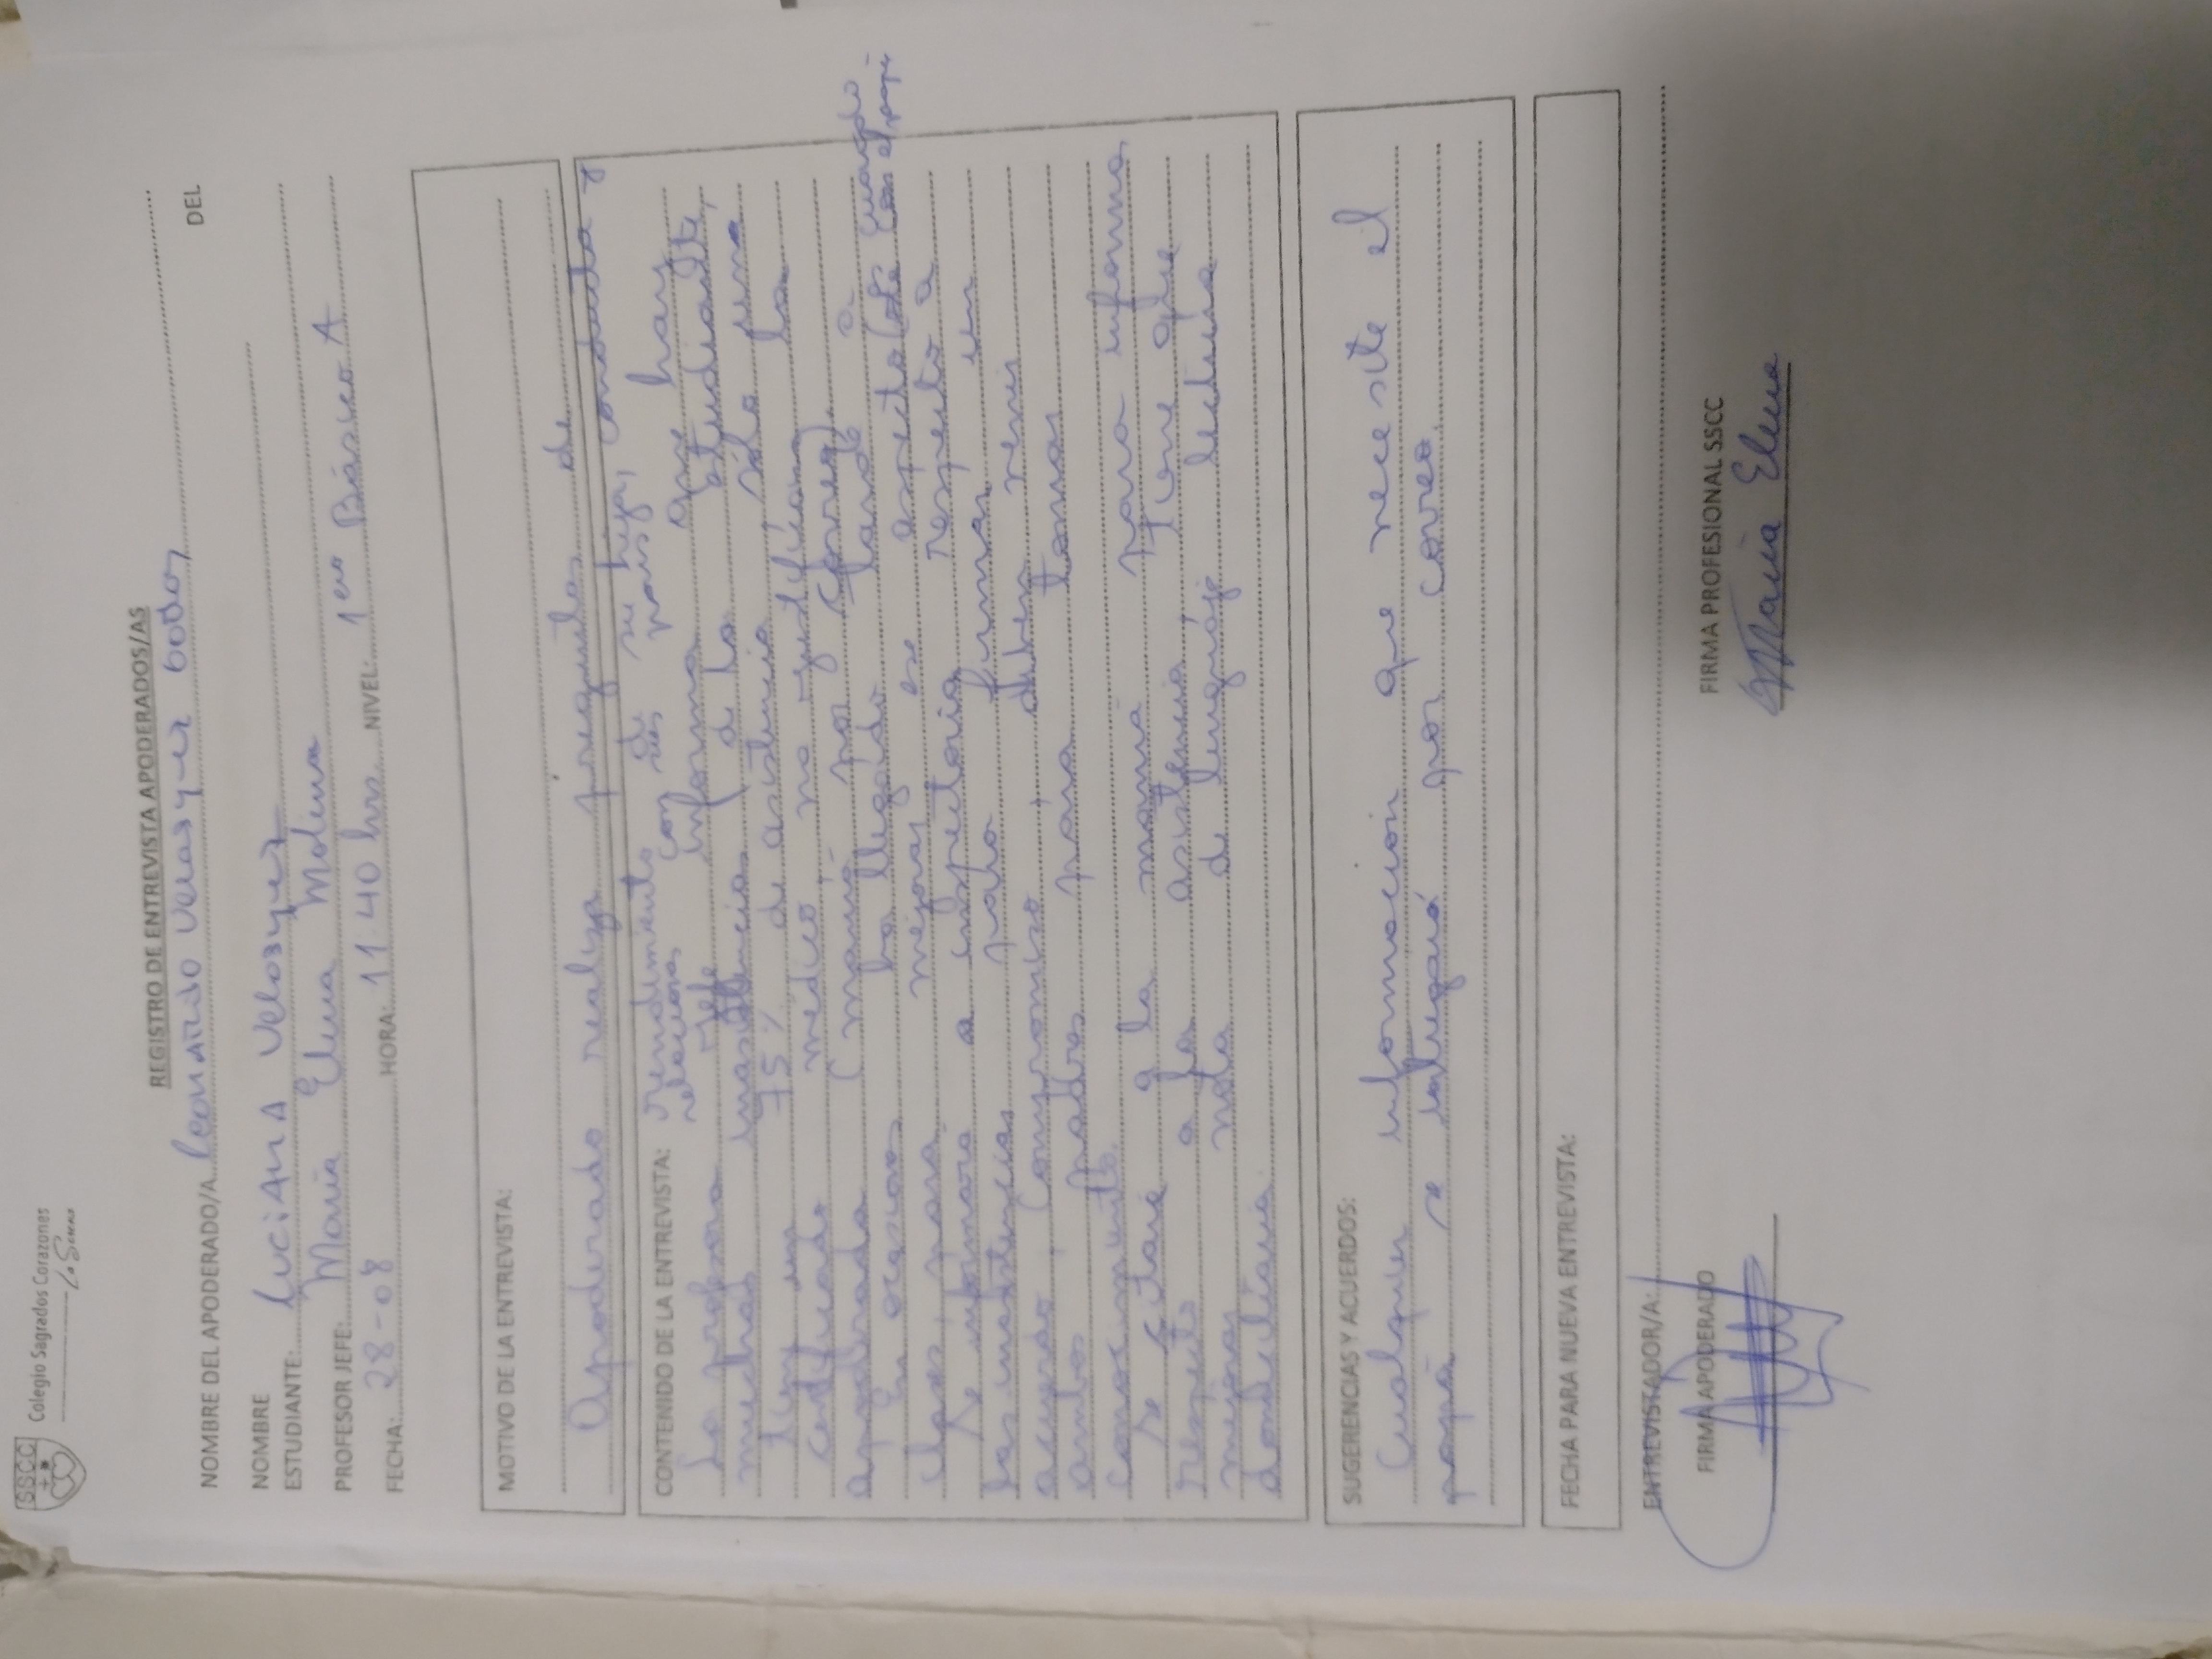 SSCC
Colegio Sagrados Corazones
La Serena
REGISTRO DE ENTREVISTA APODERADOS/AS
NOMBRE DEL APODERADO/A Leonardo Velasquez Godoy
DEL
NOMBRE
ESTUDIANTE: LuciAnA Velasquez
PROFESOR JEFE: Maria Elena Molina
FECHA: 28-08 HORA: 11.40 hrs NIVEL: 1ero Básico A
MOTIVO DE LA ENTREVISTA:
Apoderado realiza preguntas de
rendimiento de su hija, conducta y
relaciones con sus pares
CONTENIDO DE LA ENTREVISTA:
La profesora Jefe informa que hay
muchas inasistencias de la estudiante,
tiene un 75% de asistencia, sólo una
certificado médico no justifican la
apoderada (mamá - por correo)
En ocasiones ha llegado tarde a
clases, para mejorar ese aspecto (de cuando
con el papá
Se informará a inspectoria respecto a
las inasistencias para firmar un
acuerdo, compromiso, deben venir
ambos padres para tomar
conocimiento.
Se citará a la mamá para informa
respecto a la asistencia y tiene que
mejorar nota de lenguaje lectura
domiciliaria.
SUGERENCIAS Y ACUERDOS:
Cualquier información que necesite el
papá se entregará por correo.
FECHA PARA NUEVA ENTREVISTA:
ENTREVISTADOR/A:
FIRMA APODERADO
FIRMA PROFESIONAL SSCC
Maria Elena